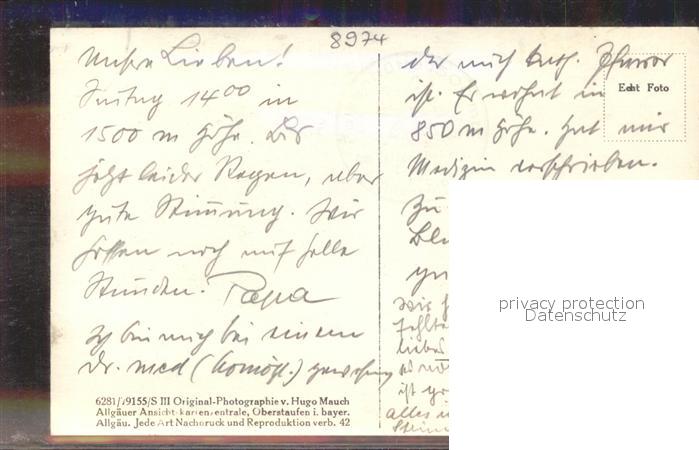 8974
Unsre Lieben!
Freitag 14 00 in
1500 m Höhe. Bis
jetzt leider Regen, aber
gute Stimmung. Wir
hoffen noch auf helle
Stunden. Papa
Ich bin auch bei einem
Dr. med (homöop.) gewesen,
der auch kath. Pfarrer
ist. Er wohnt in
850 m Höhe. Hat mir
Medizin verschrieben.
Zu
wir
lieber
ist
alles
Echt Foto
privacy protection
Datenschutz
6281/79155/S III Original-Photographie v. Hugo Mauch
Allgäuer Ansichtskartenzentrale, Oberstaufen i. bayer.
Allgäu. Jede Art Nachdruck und Reproduktion verb. 42